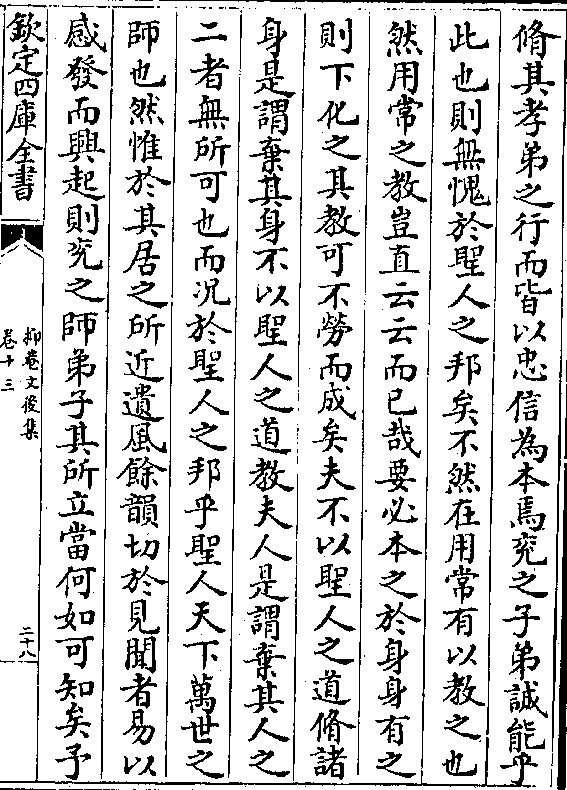 脩其孝弟之行而皆以忠信為本焉兖之子弟誠能乎
此也則無愧於聖人之邦矣不然在用常有以教之也
然用常之教豈直云云而已哉要必本之於身身有之
則下化之其教可不勞而成矣夫不以聖人之道脩諸
身是謂棄其身不以聖人之道教夫人是謂棄其人之
二者無所可也而况於聖人之邦乎聖人天下萬世之
師也然惟於其居之所近遺風餘韻切於見聞者易以
感發而興起則兖之師弟子其所立當何如可知矣予
欽定四庫全書
抑菴文後集
卷十三
二十八